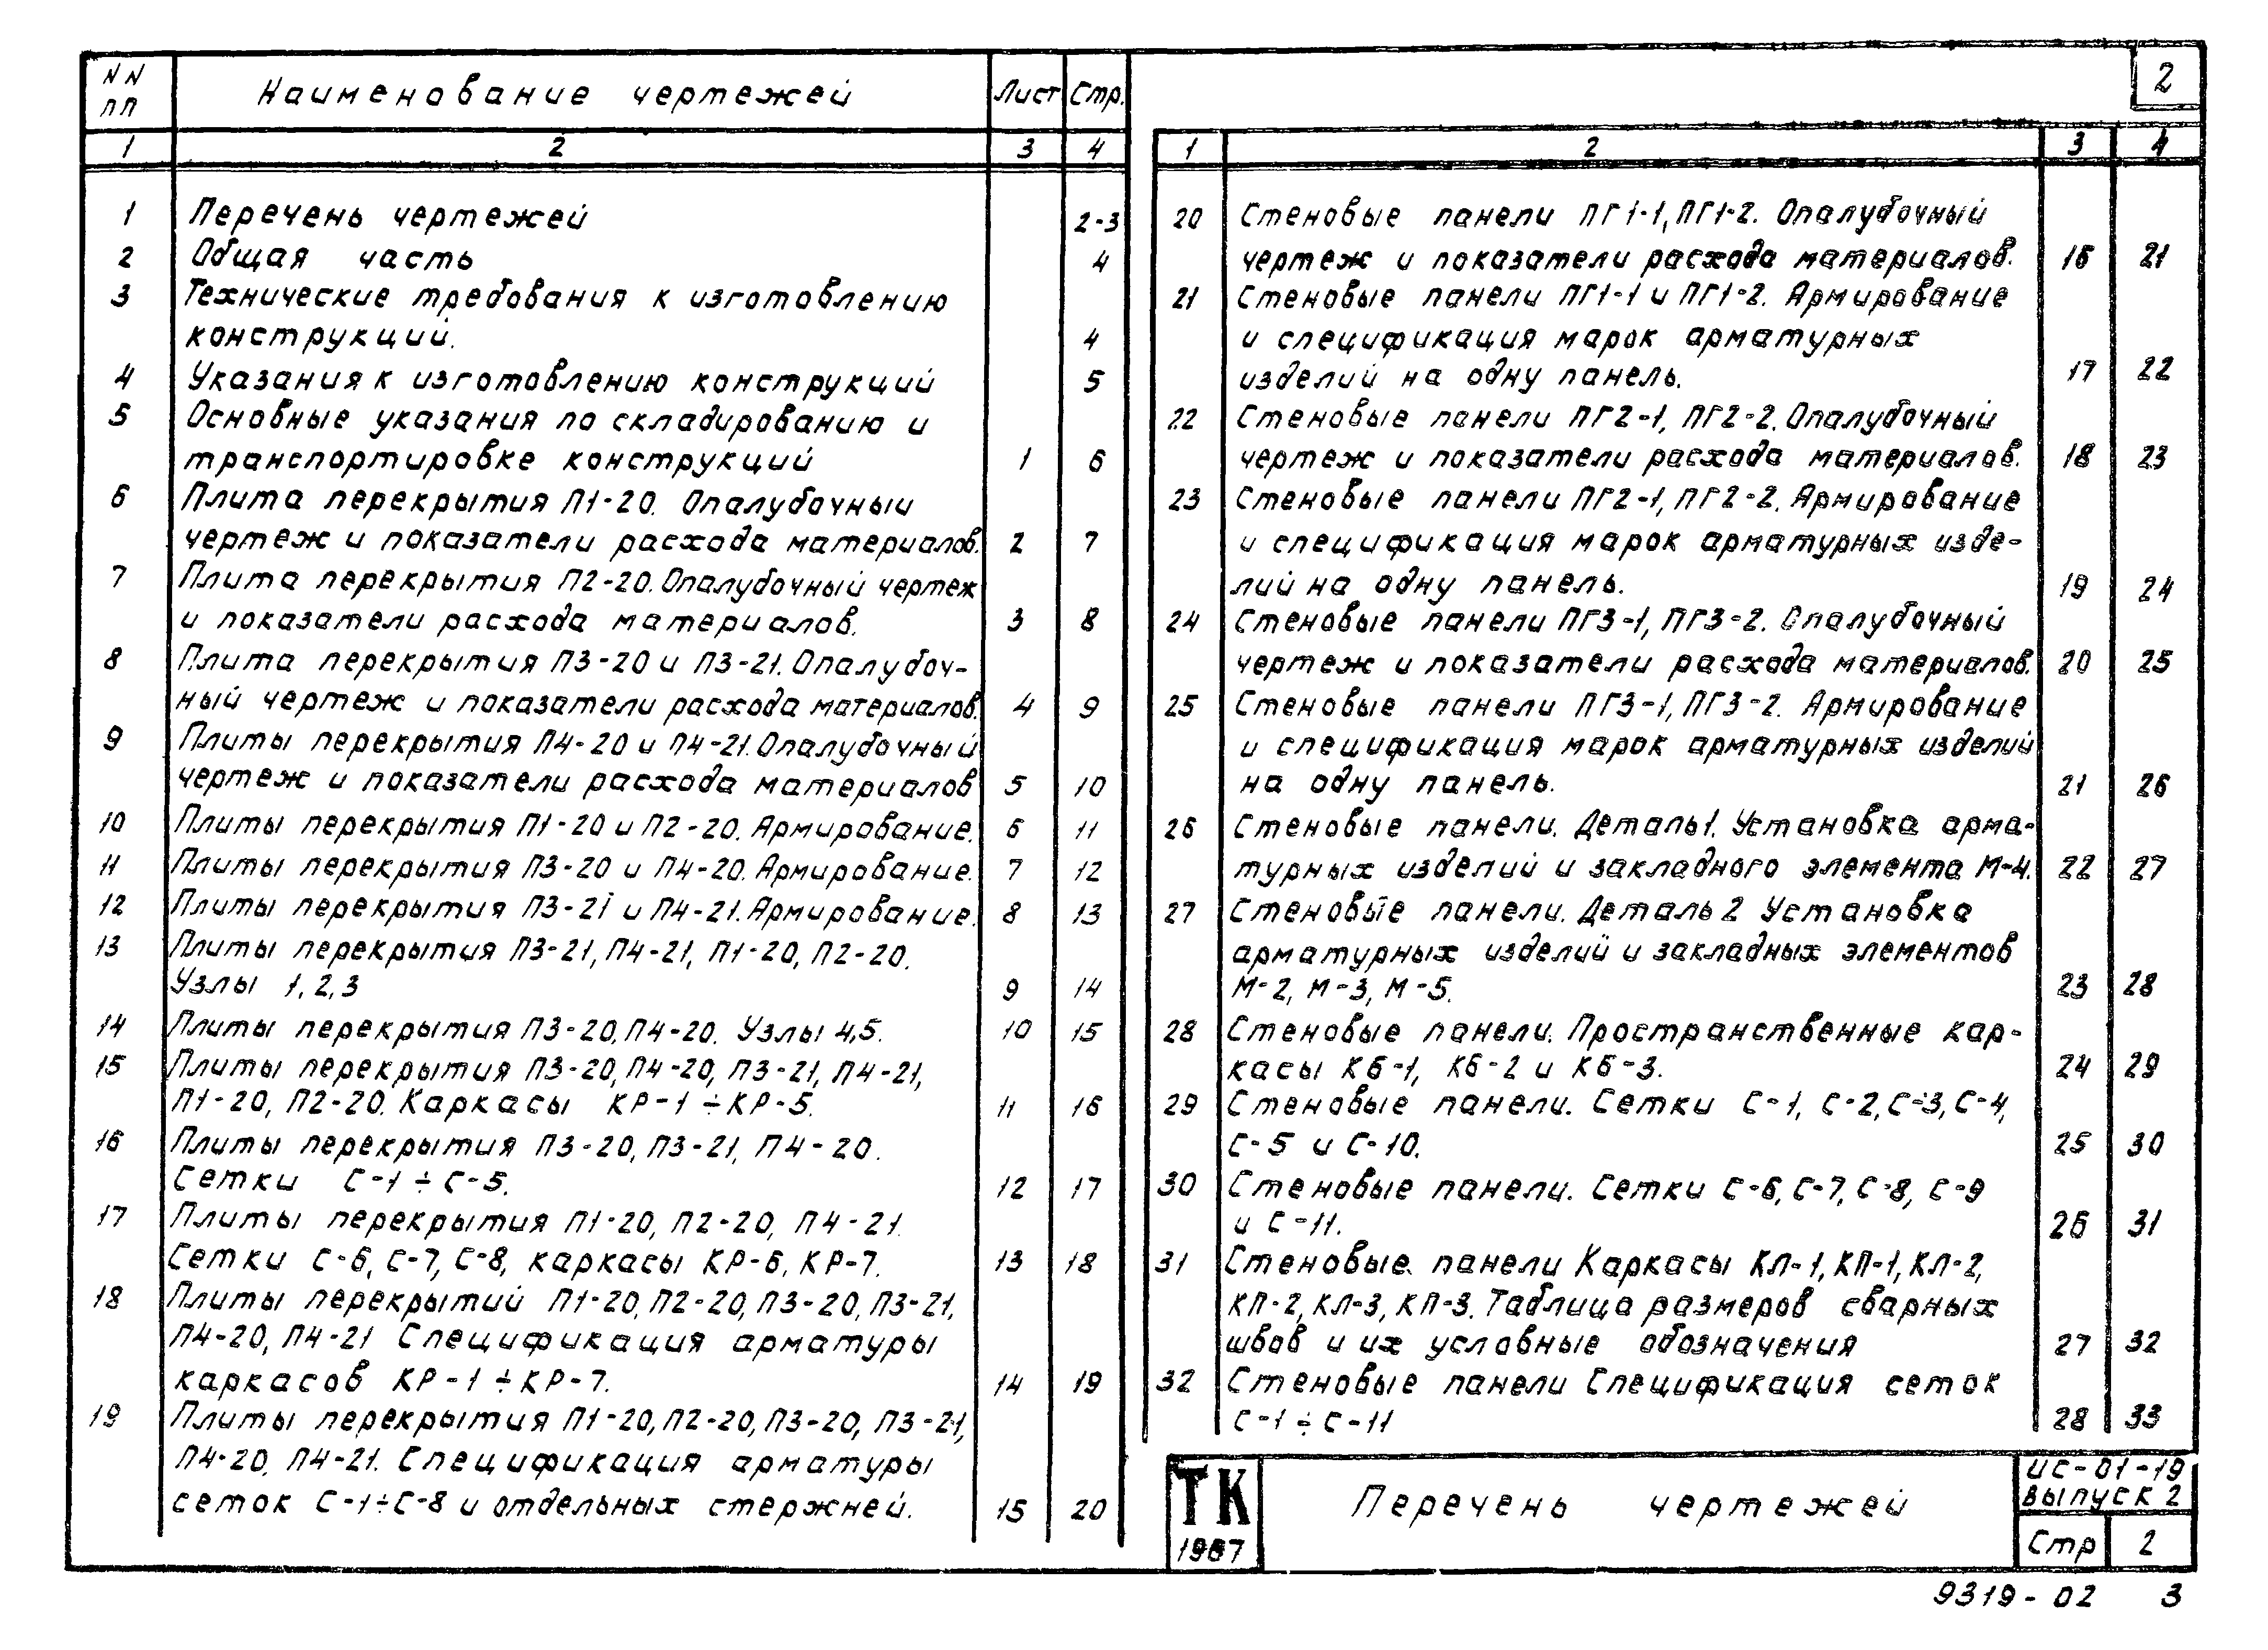 NN
пп
Наименование чертежей
Лист
Стр.
1
2
3
4
1 Перечень чертежей 2-3
2 Общая часть 4
3 Технические требования к изготовлению
конструкций. 4
4 Указания к изготовлению конструкций 5
5 Основные указания по складированию и
транспортировке конструкций 1 6
6 Плита перекрытия П1-20. Опалубочный
чертеж и показатели расхода материалов. 2 7
7 Плита перекрытия П2-20. Опалубочный чертеж
и показатели расхода материалов. 3 8
8 Плита перекрытия П3-20 и П3-21. Опалубоч-
ный чертеж и показатели расхода материалов. 4 9
9 Плиты перекрытия П4-20 и П4-21. Опалубочный
чертеж и показатели расхода материалов 5 10
10 Плиты перекрытия П1-20 и П2-20. Армирование. 6 11
11 Плиты перекрытия П3-20 и П4-20. Армирование. 7 12
12 Плиты перекрытия П3-21 и П4-21. Армирование. 8 13
13 Плиты перекрытия П3-21, П4-21, П1-20, П2-20.
Узлы 1, 2, 3 9 14
14 Плиты перекрытия П3-20, П4-20. Узлы 4,5. 10 15
15 Плиты перекрытия П3-20, П4-20, П3-21, П4-21,
П1-20, П2-20. Каркасы КР-1 ÷ КР-5. 11 16
16 Плиты перекрытия П3-20, П3-21, П4-20.
Сетки С-1 ÷ С-5. 12 17
17 Плиты перекрытия П1-20, П2-20, П4-21.
Сетки С-6, С-7, С-8, каркасы КР-6, КР-7. 13 18
18 Плиты перекрытий П1-20, П2-20, П3-20, П3-21,
П4-20, П4-21 Спецификация арматуры
каркасов КР-1 ÷ КР-7. 14 19
19 Плиты перекрытия П1-20, П2-20, П3-20, П3-21,
П4-20, П4-21. Спецификация арматуры
сеток С-1÷С-8 и отдельных стержней. 15 20
2
1 2 3 4
20 Стеновые панели ПГ1-1, ПГ1-2. Опалубочный
чертеж и показатели расхода материалов. 16 21
21 Стеновые панели ПГ1-1 и ПГ1-2. Армирование
и спецификация марок арматурных
изделий на одну панель. 17 22
22 Стеновые панели ПГ2-1, ПГ2-2. Опалубочный
чертеж и показатели расхода материалов. 18 23
23 Стеновые панели ПГ2-1, ПГ2-2. Армирование
и спецификация марок арматурных изде-
лий на одну панель. 19 24
24 Стеновые панели ПГ3-1, ПГ3-2. Опалубочный
чертеж и показатели расхода материалов. 20 25
25 Стеновые панели ПГ3-1, ПГ3-2. Армирование
и спецификация марок арматурных изделий
на одну панель. 21 26
26 Стеновые панели. Деталь 1. Установка арма-
турных изделий и закладного элемента М-4. 22 27
27 Стеновые панели. Деталь 2 Установка
арматурных изделий и закладных элементов
М-2, М-3, М-5. 23 28
28 Стеновые панели. Пространственные кар-
касы КБ-1, КБ-2 и КБ-3. 24 29
29 Стеновые панели. Сетки С-1, С-2, С-3, С-4,
С-5 и С-10. 25 30
30 Стеновые панели. Сетки С-6, С-7, С-8, С-9
и С-11. 26 31
31 Стеновые панели Каркасы КЛ-1, КП-1, КЛ-2,
КП-2, КЛ-3, КП-3. Таблица размеров сварных
швов и их условные обозначения 27 32
32 Стеновые панели Спецификация сеток
С-1 ÷ С-11 28 33
ТК
1967
Перечень чертежей
ИС-01-19
выпуск 2
Стр 2
9319-02 3